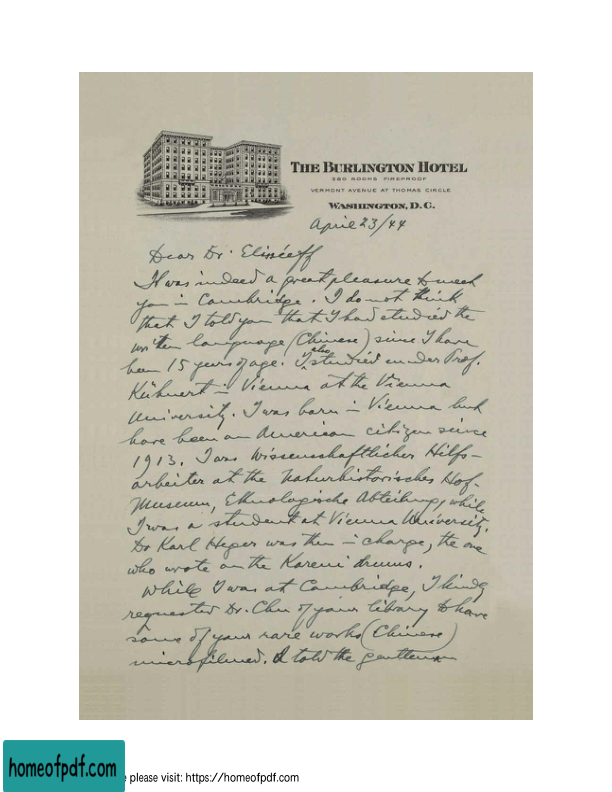 THE BURLINGTON HOTEL
380 ROOMS FIREPROOF
VERMONT AVENUE AT THOMAS CIRCLE
WASHINGTON, D.C.
April 23/44
Dear Dr. Elisséeff
It was indeed a great pleasure to meet
you in Cambridge. I do not think
that I told you that I had studied the
written language (Chinese) since I have
been 15 years of age. I also studied under Prof.
Kühnert in Vienna at the Vienna
University. I was born in Vienna but
have been an American citizen since
1913. I was wissenschaftlicher Hilfs-
arbeiter at the Naturhistorisches Hof-
Museum, Ethnologische Abteilung, while
I was a student at Vienna University.
Dr Karl Heger was then in charge, the one
who wrote on the Kareni drums.
While I was at Cambridge, I
requested Dr. Chu of your library to have
some of your rare works (Chinese)
microfilmed. I told the gentleman
homeofpdf.com
please visit: https://homeofpdf.com